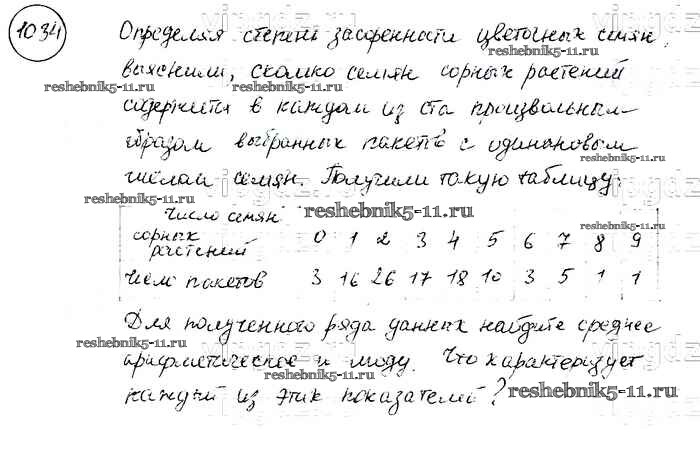 1034
Определяя степень засоренности цветочных семян,
выяснили, сколько семян сорных растений
reshebnik5-11.ru reshebnik5-11.ru
содержится в каждом из ста произвольным
образом выбранных пакетов с одинаковым
reshebnik5-11.ru
числом семян. Получили такую таблицу:
reshebnik5-11.ru reshebnik5-11.ru
Число семян
сорных растений 0 1 2 3 4 5 6 7 8 9
Число пакетов 3 16 26 17 18 10 3 5 1 1
Для полученного ряда данных найдите среднее
reshebnik5-11.ru reshebnik5-11.ru
арифметическое и моду. Что характеризует
reshebnik5-11.ru
каждый из этих показателей?
reshebnik5-11.ru